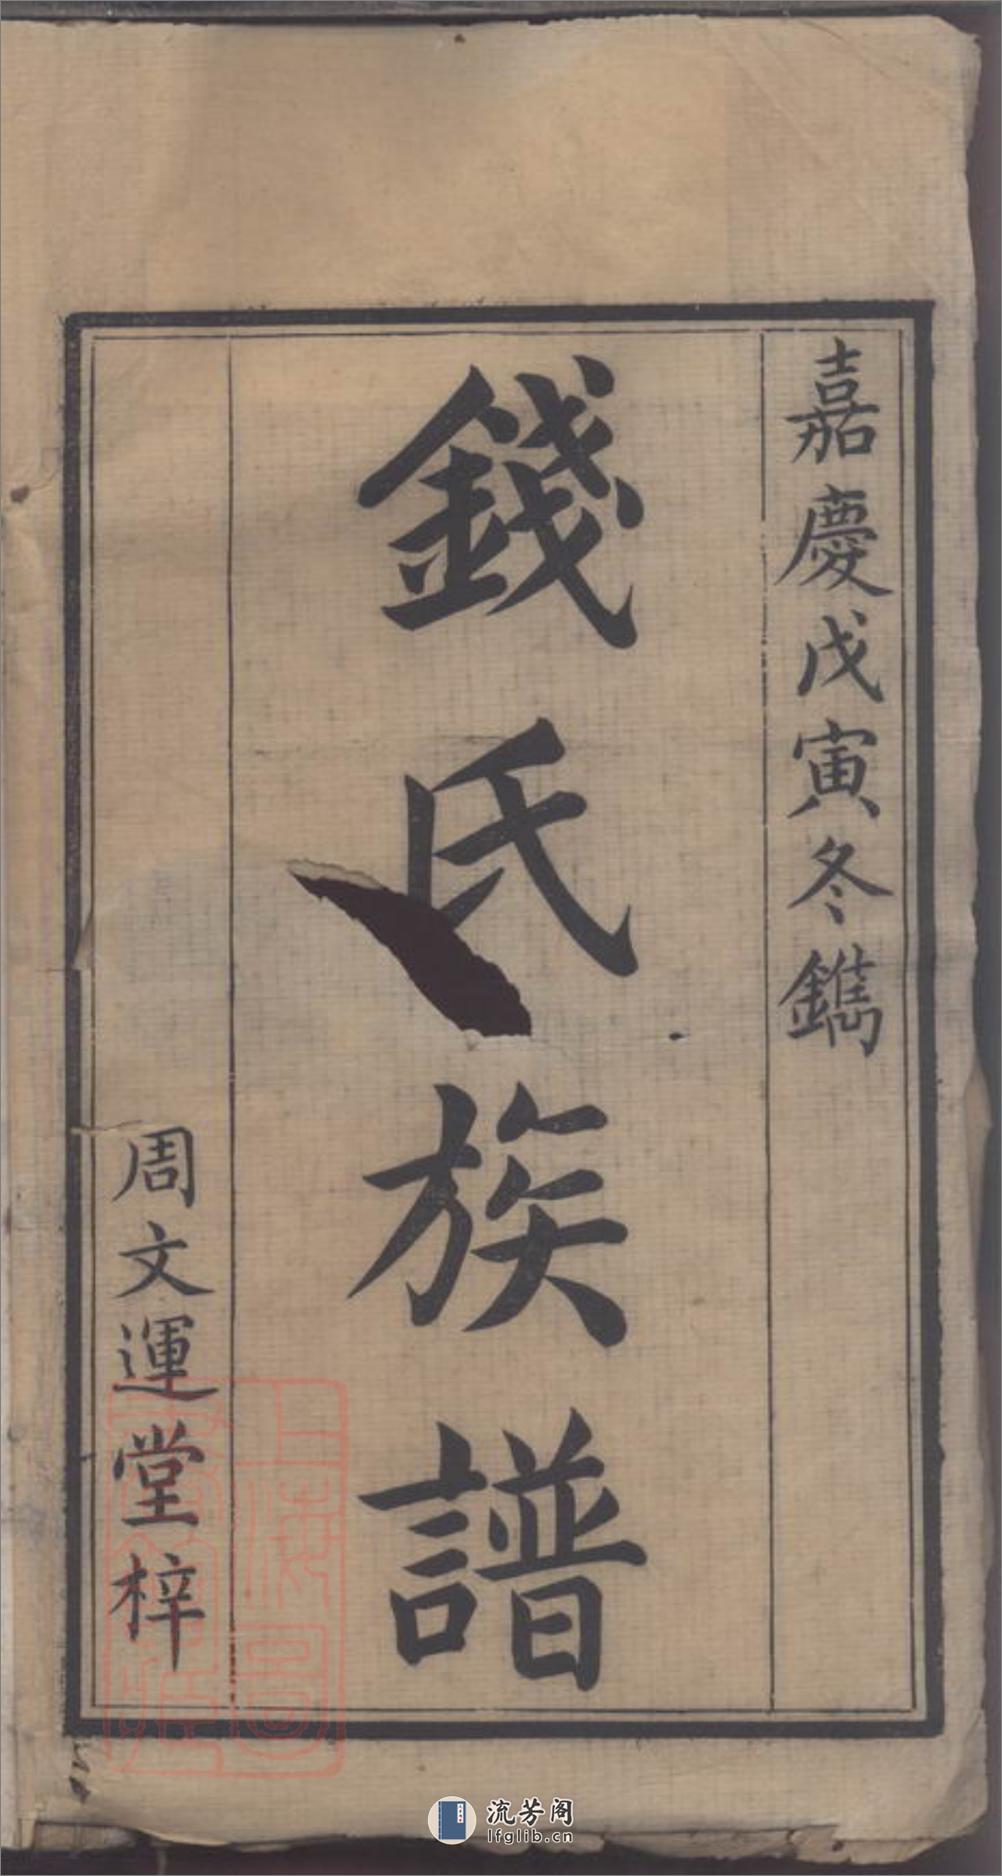 嘉慶戊寅冬鐫
錢氏族譜
周文運堂梓
上海圖書館藏
流芳阁
lfglib.cn